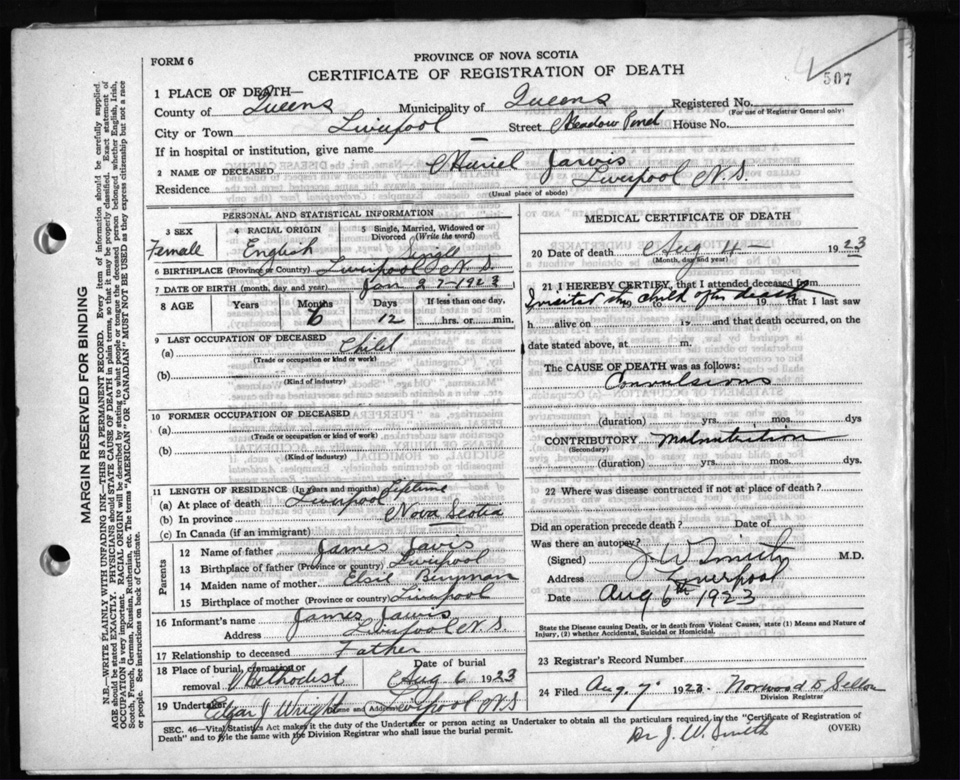 FORM 6
PROVINCE OF NOVA SCOTIA
CERTIFICATE OF REGISTRATION OF DEATH
507
1 PLACE OF DEATH—
County of Queens Municipality of Queens Registered No.
(For use of Registrar General only)
City or Town Liverpool Street Meadow Pond House No.
If in hospital or institution, give name —
2 NAME OF DECEASED Muriel Jarvis
Residence Liverpool N.S.
(Usual place of abode)
PERSONAL AND STATISTICAL INFORMATION
3 SEX Female
4 RACIAL ORIGIN English
5 Single, Married, Widowed or Divorced (Write the word) Single
6 BIRTHPLACE (Province or Country) Liverpool N.S.
7 DATE OF BIRTH (month, day, and year) Jan 27-1923
8 AGE Years Months 6 Days 12 If less than one day, hrs. or min.
9 LAST OCCUPATION OF DECEASED
(a) Child
(Trade or occupation or kind or work)
(b) —
(Kind of industry)
10 FORMER OCCUPATION OF DECEASED
(a)
(Trade or occupation or kind of work)
(b)
(Kind of industry)
11 LENGTH OF RESIDENCE (In years and months) Lifetime
(a) At place of death Liverpool
(b) In province Nova Scotia
(c) In Canada (if an immigrant)
Parents
12 Name of father James Jarvis
13 Birthplace of father (Province or country) Liverpool
14 Maiden name of mother Elsie
15 Birthplace of mother (Province or country) Liverpool
16 Informant's name James Jarvis
Address Liverpool N.S.
17 Relationship to deceased Father
18 Place of burial, cremation or removal Methodist Date of burial Aug 6 1923
19 Undertaker Edgar J Wright Liverpool NS
(Name and Address)
MEDICAL CERTIFICATE OF DEATH
20 Date of death Aug 4 — 1923
(Month, day and year)
21 I HEREBY CERTIFY, that I attended deceased from
I visited this child after death
to 19 that I last saw
h alive on 19 and that death occurred, on the
date stated above, at m.
The CAUSE OF DEATH was as follows:
Convulsions
(duration) yrs. mos. dys
CONTRIBUTORY Malnutrition
(Secondary)
(duration) yrs. mos. dys.
22 Where was disease contracted if not at place of death?
Did an operation precede death? Date of
Was there an autopsy?
(Signed) J W Smith M.D.
Address Liverpool
Date Aug 6th 1923
State the Disease causing Death, or in death from Violent Causes, state (1) Means and Nature of
Injury, (2) whether Accidental, Suicidal or Homicidal.
23 Registrar's Record Number
24 Filed Aug 7 1923 Norwood
Division Registrar
SEC. 46—Vital Statistics Act makes it the duty of the Undertaker or person acting as Undertaker to obtain all the particulars required in the "Certificate of Registration of
Death" and to file the same with the Division Registrar who shall issue the burial permit.
(OVER)
Dr J. W. Smith
MARGIN RESERVED FOR BINDING
N.B.—WRITE PLAINLY WITH UNFADING INK—THIS IS A PERMANENT RECORD. Every item of information should be carefully supplied.
AGE should be stated EXACTLY. PHYSICIANS should STATE CAUSE OF DEATH in plain terms, so that it may be properly classified. Exact statement of
OCCUPATION is very important. RACIAL ORIGIN will be described by stating to what people or tongue the deceased person belonged whether English, Irish,
Scotch, French, German, Russian, Ruthenian, etc. The terms "AMERICAN" OR "CANADIAN" MUST NOT BE USED as they express citizenship but not a race
or people. See instructions on back of Certificate.